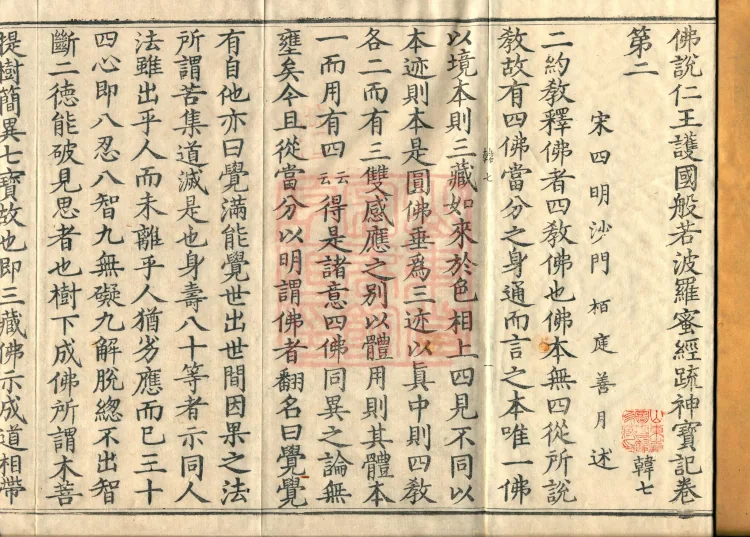 佛說仁王護國般若波羅蜜經疏神寶記卷
第二 韓七
宋四明沙門 栢庭善月 述
二約教釋佛者四教佛也佛本無四從所說
教故有四佛當分之身通而言之本唯一佛
韓七
以境本則三藏如來於色相上四見不同以
本迹則本是圓佛垂為三迹以真中則四教
各二而有三雙感應之別以體用則其體本
一而用有四云云得是諸意四佛同異之論無
壅矣今且從當分以明謂佛者翻名曰覺覺
有自他亦曰覺滿能覺世出世間因果之法
所謂苦集道滅是也身壽八十等者示同人
法雖出乎人而未離乎人猶劣應而已三十
四心即八忍八智九無礙九解脫緫不出智
斷二德能破見思者也樹下成佛所謂木菩
提樹簡異七寶故也即三藏佛示成道相帶